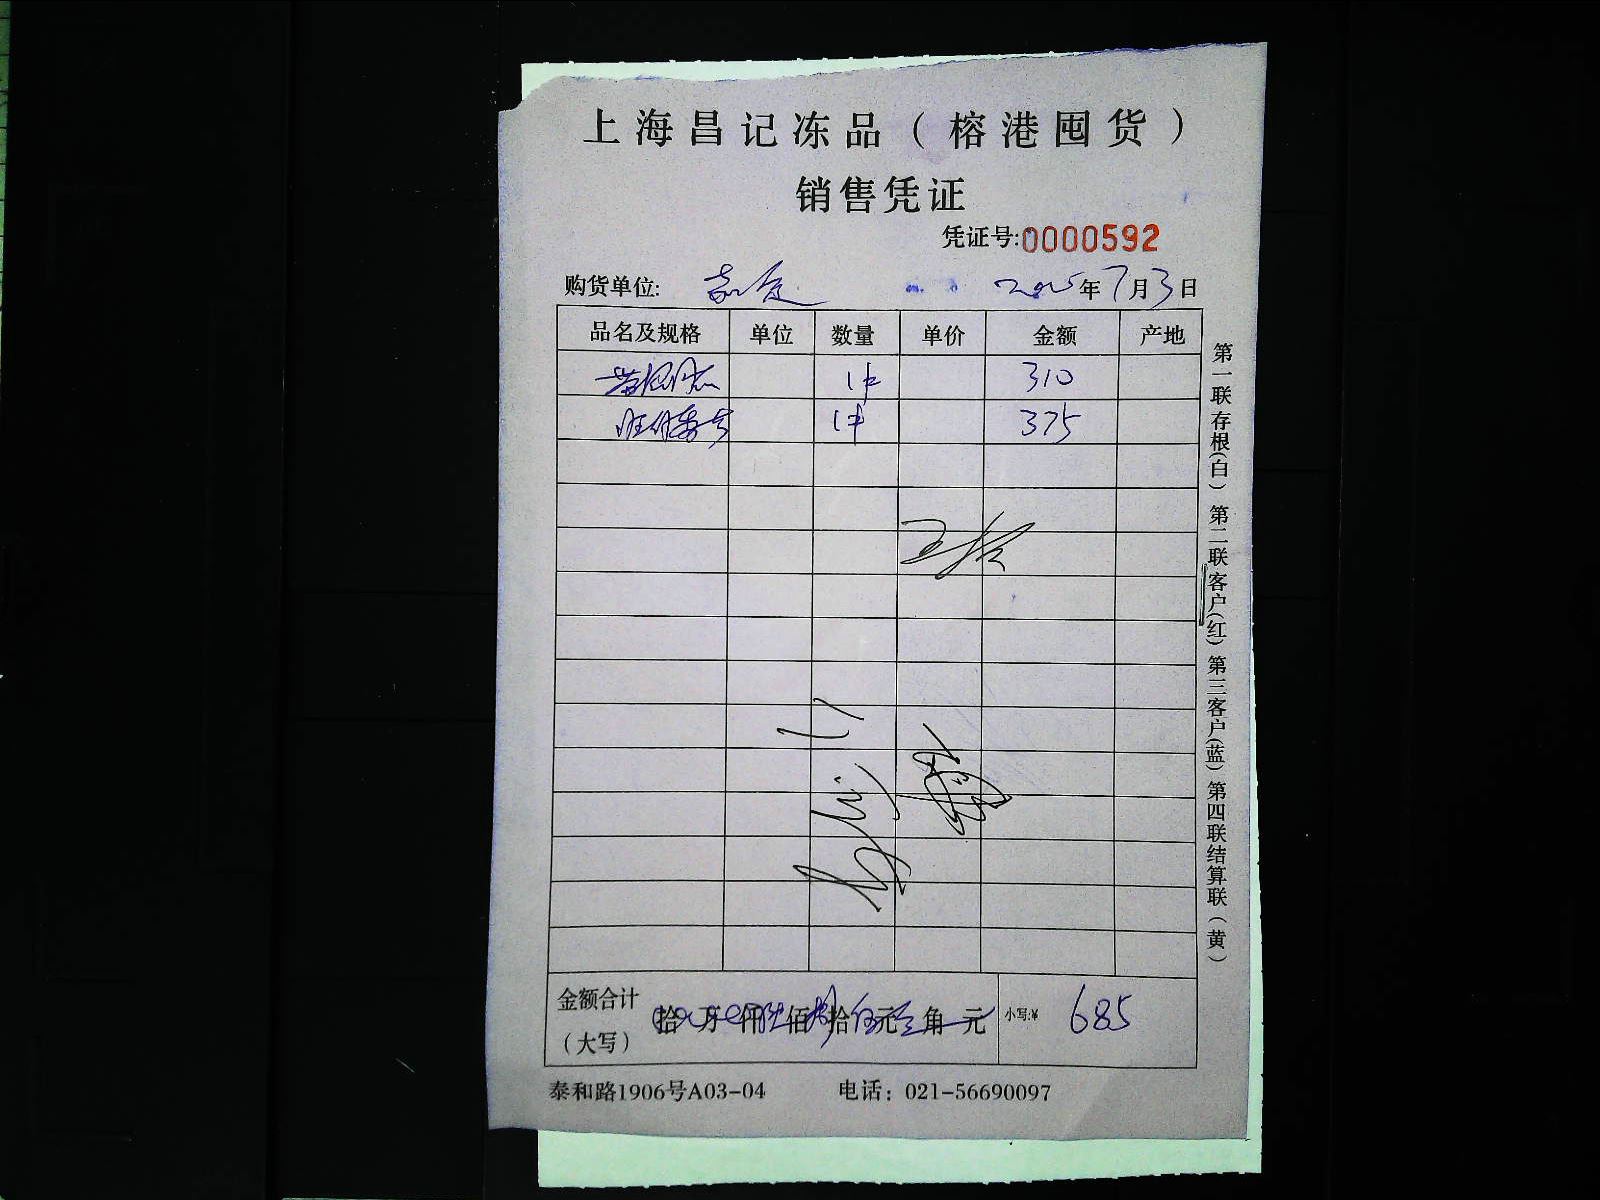 上海昌记冻品（榕港囤货）
销售凭证
凭证号:0000592
购货单位: 嘉定 2025年7月3日
品名及规格 单位 数量 单价 金额 产地
1件 310
1件 375
金额合计（大写） 拾 万 仟 陆佰捌拾伍元 角 元 小写:¥ 685
泰和路1906号A03-04 电话：021-56690097
第一联存根(白) 第二联客户(红) 第三客户(蓝) 第四联结算联（黄）